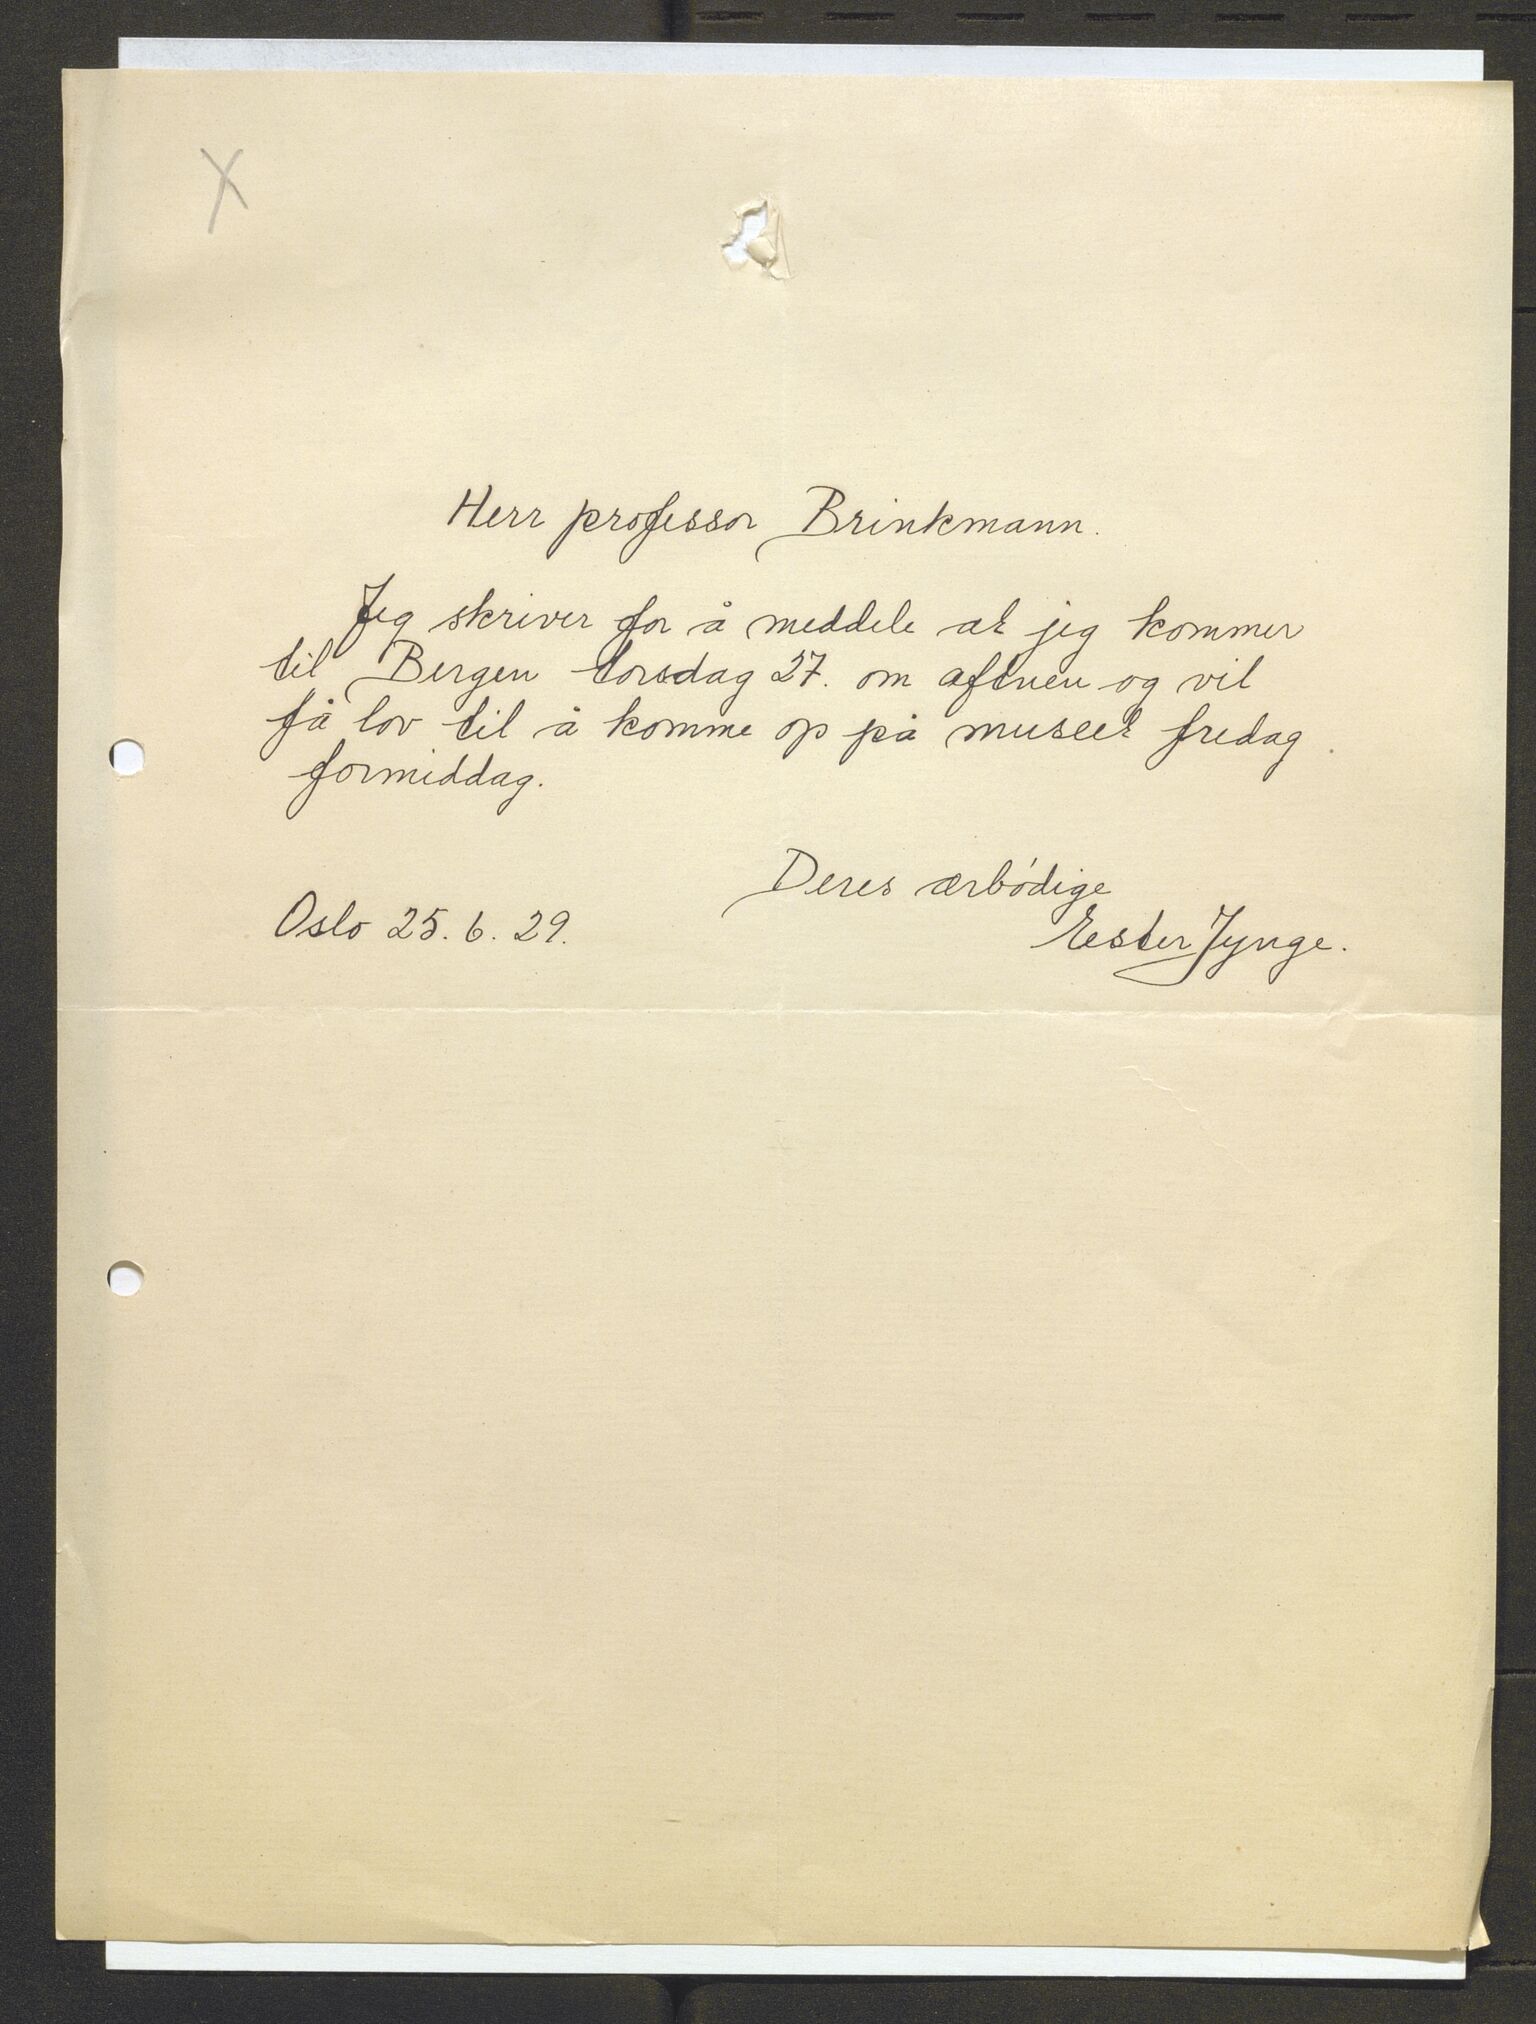 X
Herr professor Brinkmann.
Jeg skriver for å meddele at jeg kommer
til Bergen torsdag 27. om aftnen og vil
få lov til å komme op på museet fredag
formiddag.
Deres ærbødige
Oslo 25. 6. 29.
Ester Jynge.